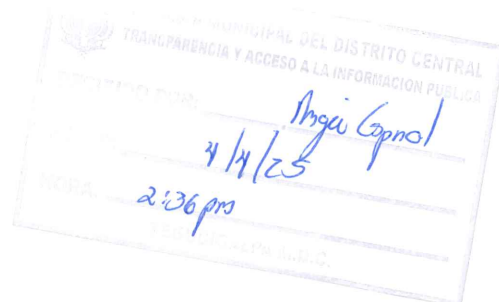 MUNICIPAL DEL DISTRITO CENTRAL
TRANSPARENCIA Y ACCESO A LA INFORMACION PUBLICA
RECIBIDO POR: Angie
4/4/25
HORA: 2:36 pm